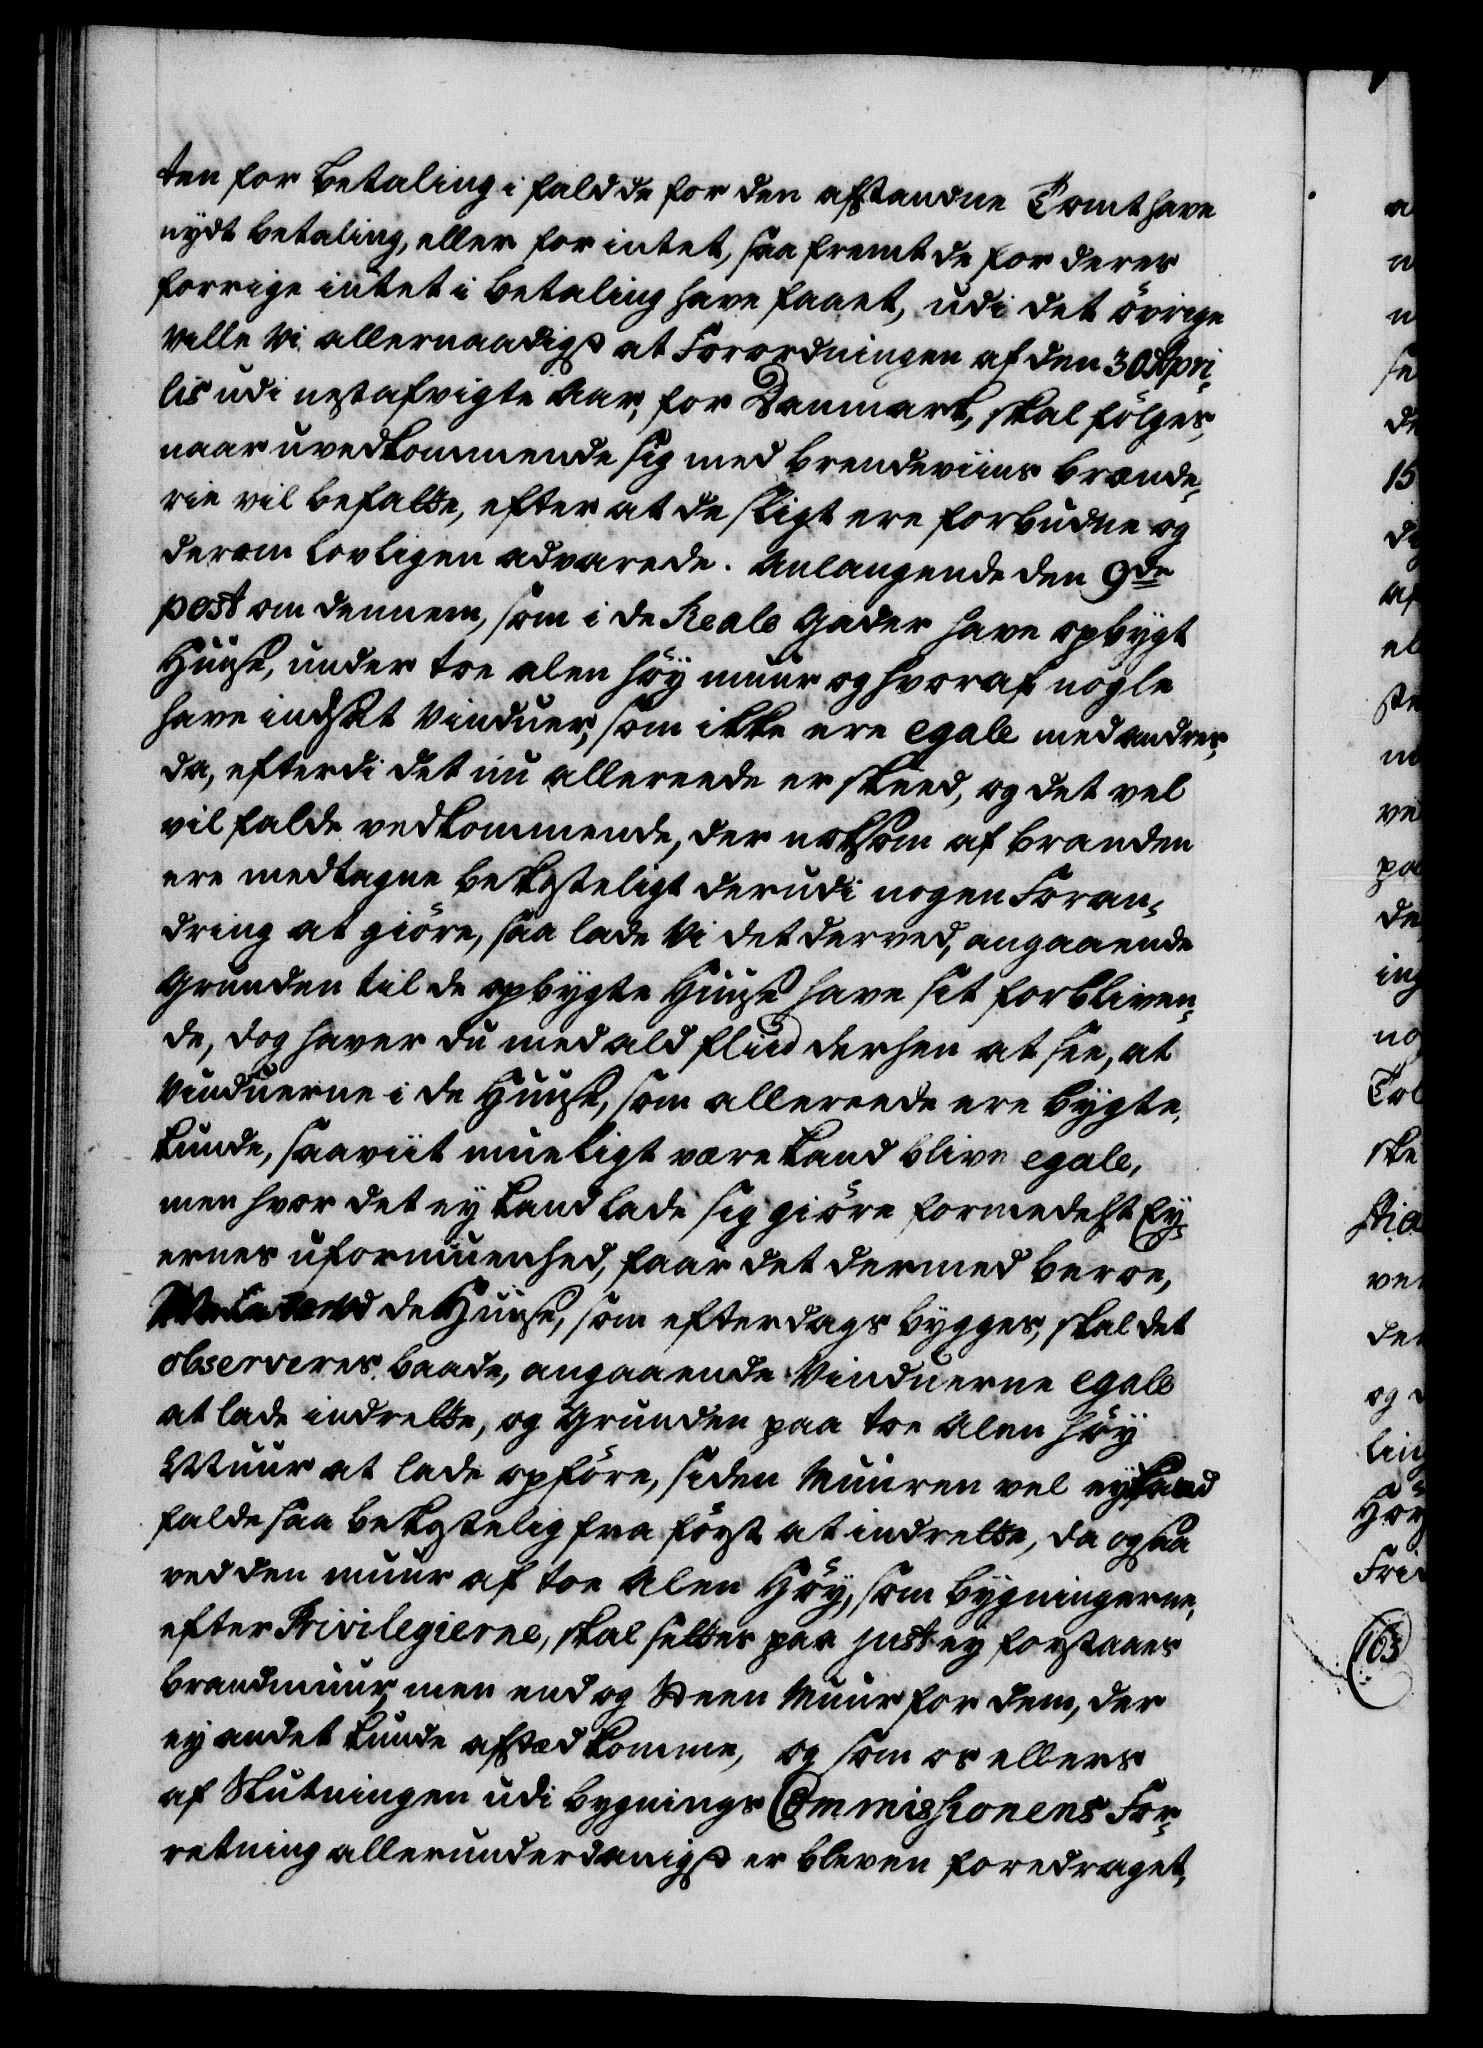 ten for betaling i fald de for den afstandne Tomt have
nydt betaling, eller for intet, saa fremt de for deres
forrige intet i betaling have faaet, udi det övrige
ville Vi allernaadigst at Forordningen af den 30 Apri-
lis udi nestafvigte Aar, for Danmark, skal fölges,
naar uvedkommende sig med brendeviins brænde-
rie vil befatte, efter at de sligt ere forbudne og
derom lovligen advarede. Anlangende den 9de
post om dennem, som i de Reale Gader have opbygt
Huuse, under toe alen höy muur og hvoraf nogle
have indsat Vinduer, som ikke ere egale med andres,
da, efterdi det nu allereede er skeed, og det vel
vil falde vedkommende, der noksom af branden
ere medtagne bekosteligt derudi nogen Foran-
dring at giöre, saa lade Vi det derved, angaaende
Grunden til de opbygte Huuse have sit forbliven-
de, dog haver du med ald fliid derhen at see, at
Vinduerne i de Huuse, som allereede ere bygte,
kunde, saaviit mueligt være kand blive egale,
men hvor det ey kand lade sig giöre formedelst Ey-
ernes uformuenhed, faar det dermed beroe,
de Huuse, som efterdags bygges, skal det
observeres baade, angaaende Vinduerne egale
at lade indrette, og Grunden paa toe Alen höy
Muur at lade opföre, siden Muuren vel ey kand
falde saa bekostelig fra först at indrette, da ogsaa
ved den muur af toe Alen Höy, som bygningerne,
efter Privilegierne, skal settes paa just ey forstaaes
brandmuur, men end og Steen Muur for dem, der
ey andet kunde afsted komme, og som os ellers
af Slutningen udi bygnings Commissionens For-
retning allerunderdanigst er bleven foredraget,